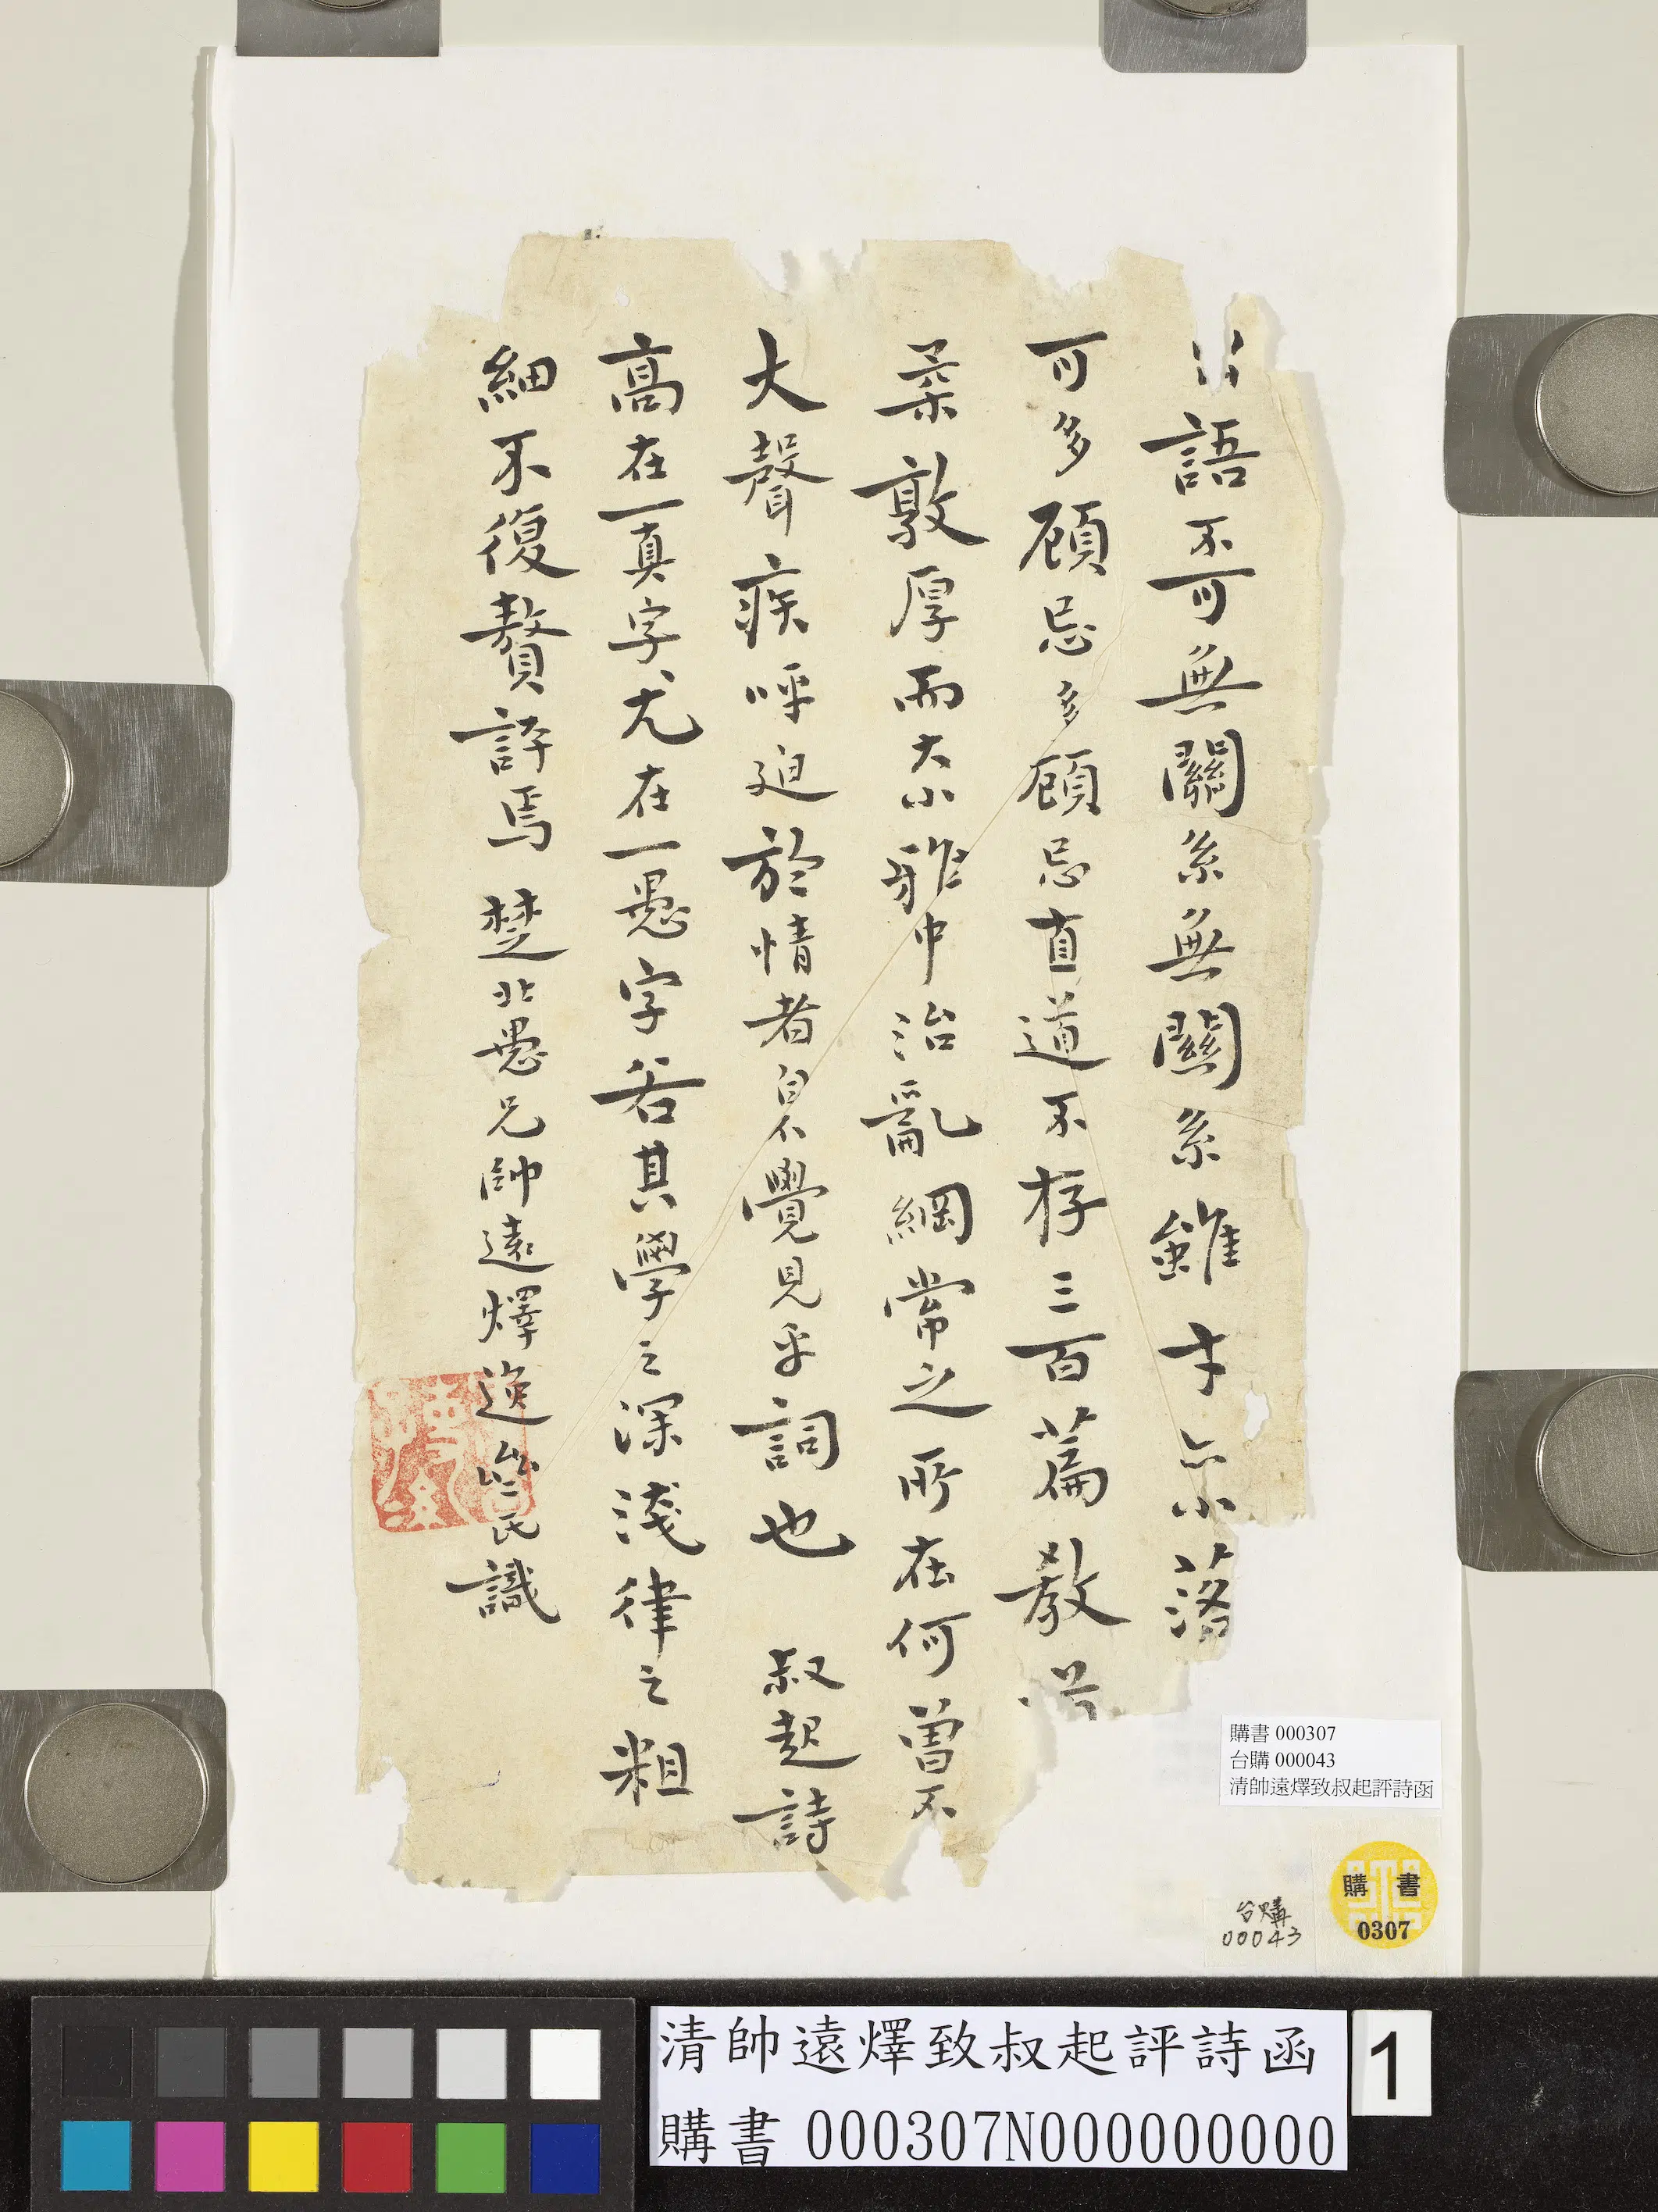 語不可無關系無關系雖才亦落
可多顧忌多顧忌直道不存三百篇教
柔敦厚而大小雅中治亂綱常之所在何曾不
大聲疾呼迫於情者自不覺見乎詞也 叔起詩
高在一真字尤在一愚字若其學之深淺律之粗
細不復贅評焉 楚北愚兄帥遠燡逸民識
購書 000307
台購 000043
清帥遠燡致叔起評詩函
購書
0307
台購
00043
清帥遠燡致叔起評詩函
購書000307N000000000
1